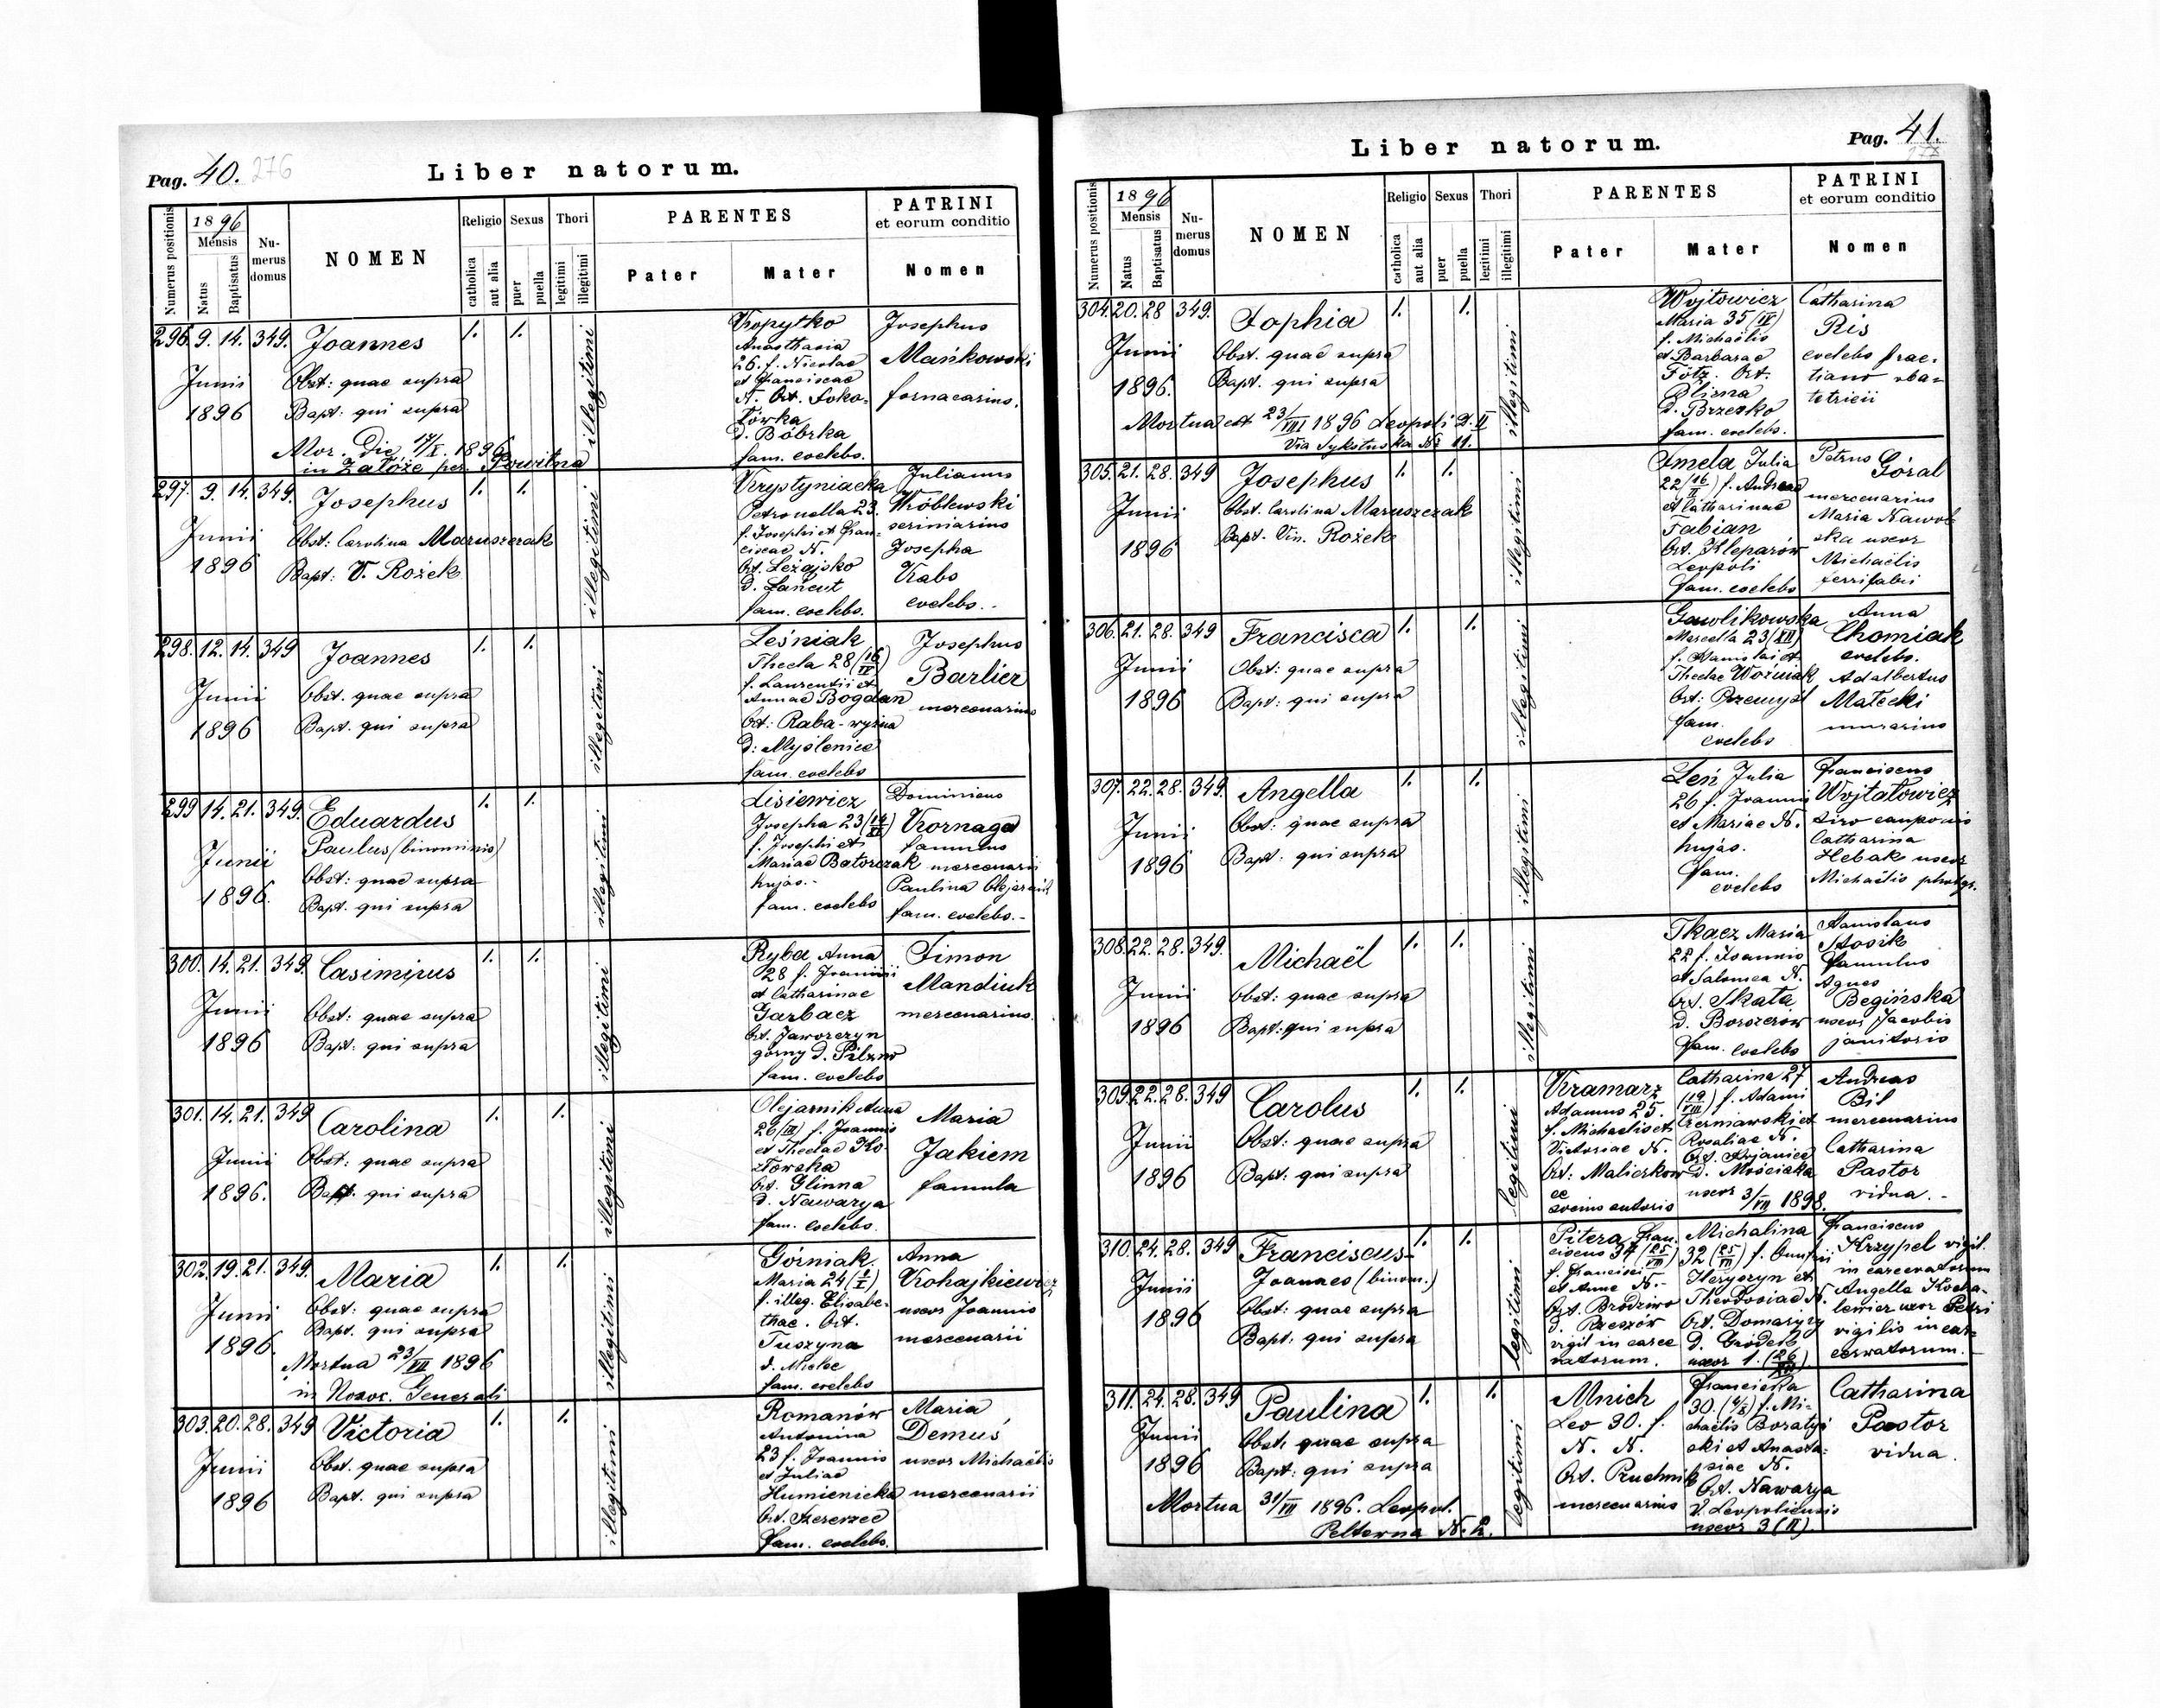 Pag. 40. 276
Liber natorum.
Numerus positionis
1896
Mensis
Natus
Baptisatus
Nu-
merus
domus
NOMEN
Religio
catholica
aut alia
Sexus
puer
puella
Thori
legitimi
illegitimi
PARENTES
Pater
Mater
PATRINI
et eorum conditio
Nomen
296. 9. 14. 349. Joannes 1. 1.
Junii Obst: quae supra
1896 Bapt: qui supra
Mor. Die 17/X. 1896
in Zatoże per. Powitna
illegitimi
Kopytko
Anasthasia
26. f. Nicolae
et Franciscae
N. Ort. Soko-
łówka
d. Bóbrka
fam. coelebs.
Josephus
Mańkowski
fornacarius.
297. 9. 14. 349. Josephus 1. 1.
Junii Obst: Carolina Maruszczak
1896 Bapt: V. Rożek
illegitimi
Krystyniacka
Petronella 23.
f. Josephi et Fran-
ciscae N.
Ort. Leżajsko
d. Łańcut
fam. coelebs.
Julianus
Wróblewski
seriniarius
Josepha
Krabs
coelebs.
298. 12. 14. 349 Joannes 1. 1.
Junii Obst. quae supra
1896 Bapt. qui supra
illegitimi
Leśniak
Thecla 28 (16/IX)
f. Laurentii et
Annae Bogdan
Ort: Raba-wyżna
d: Myślenice
fam. coelebs
Josephus
Barlier
mercenarius
299 14. 21. 349. Eduardus 1. 1.
Paulus (binominis)
Junii Obst: quae supra
1896. Bapt. qui supra
illegitimi
Lisiewicz
Josepha 23
f. Josephi et
Mariae Batorczak
hujas.
fam. coelebs
Dominicus
Kornaga
famulus
mercenarii
Paulina
fam. coelebs.
300. 14. 21. 349. Casimirus 1. 1.
Junii Obst: quae supra
1896 Bapt: qui supra
illegitimi
Ryba Anna
28 f. Joannis
et Catharinae
Garbacz
Ort. Jaworzyn
górny d. Pilzno
fam. coelebs
Simon
Mandiuk
mercenarius.
301. 14. 21. 349 Carolina 1. 1.
Junii Obst: quae supra
1896. Bapt. qui supra
illegitimi
Olejarnik Anna
26 (III) f. Joannis
et Theclae Ko-
złowska
Ort. Glinna
d. Nawarya
fam. coelebs.
Maria
Jakiem
famula
302. 19. 21. 349. Maria 1. 1.
Junii Obst: quae supra
1896. Bapt. qui supra
Mortua 23/VII 1896
in Nosoc. Generali
illegitimi
Górniak
Maria 24
f. illeg. Elisabe-
thae. Ort.
Tuszyna
d. Mielec
fam. coelebs
Anna
Krohajkiewicz
uxor Joannis
mercenarii
303. 20. 28. 349 Victoria 1. 1.
Junii Obst. quae supra
1896 Bapt. qui supra
illegitimi
Romanów
Antonina
23 f. Joannis
et Juliae
Humienicka
Ort. Szczerzec
fam. coelebs.
Maria
Demuś
uxor Michaëlis
mercenarii
Pag. 41.
Liber natorum.
Numerus positionis
1896
Mensis
Natus
Baptisatus
Nu-
merus
domus
NOMEN
Religio
catholica
aut alia
Sexus
puer
puella
Thori
legitimi
illegitimi
PARENTES
Pater
Mater
PATRINI
et eorum conditio
Nomen
304. 20. 28 349. Sophia 1. 1.
Junii Obst. quae supra
1896. Bapt. qui supra
Mortua est 23/VIII 1896 Leopoli D. II
Via Sykstuska № 11.
illegitimi
Wojtowicz
Maria 35 (IV)
f. Michaëlis
et Barbarae
Fötz. Ort.
Blizna
d. Brzesko
fam. coelebs.
Catharina
Ris
coelebs prac-
tians obs-
tetricii
305. 21. 28. 349 Josephus 1. 1.
Junii Obst. Carolina Maruszczak
1896 Bapt. Vin. Rożek
illegitimi
Smela Julia
22 (16/II) f. Andreae
et Catharinae
Fabian
Ort. Kleparów
Leopoli
fam. coelebs
Petrus Góral
mercenarius
Maria Nawol
ska uxor
Michaëlis
ferrifabri
306. 21. 28. 349 Francisca 1. 1.
Junii Obst: quae supra
1896 Bapt: qui supra
illegitimi
Gawlikowska
Marcella 23 (XII)
f. Stanislai et
Theclae Woźniak
Ort: Przemyśl
fam.
coelebs
Anna
Chomiak
coelebs.
Adalbertus
Małecki
murarius
307. 22. 28. 349. Angella 1. 1.
Junii Obst: quae supra
1896 Bapt: qui supra
illegitimi
Leń Julia
26 f. Joannis
et Mariae N.
hujas.
fam.
coelebs
Franciscus
Wojtatowicz
Catharina
Hebak uxor
Michaëlis photgr.
308. 22. 28. 349. Michaël 1. 1.
Junii Obst: quae supra
1896 Bapt: qui supra
illegitimi
Tkacz Maria
22 f. Joannis
et Salomea N.
Ort. Skała
d. Borszczów
fam. coelebs
Stanislaus
Stosik
famulus
Agnes
Begińska
uxor Jacobis
janitoris
309. 22. 28. 349 Carolus 1. 1.
Junii Obst: quae supra
1896 Bapt: qui supra
legitimi
Kramarz
Adamus 25.
f. Michaelis et
Victoriae N.
Ort: Maliczkow
ce
socius sutoris
Catharina 27
(19/VIII) f. Adami
Czerniawski et
Rosaliae N.
Ort. Stojanice
d. Mościska
uxor 3/VII 1898.
Andreas
Bil
mercenarius
Catharina
Pastor
vidua.
310. 24. 28. 349 Franciscus 1. 1.
Junii Joannes (binom.)
1896 Obst: quae supra
Bapt: qui supra
legitimi
Pitera Fran-
ciscus 34 (25/VIII)
f. Francisci
et Annae N.
Ort. Brodziwo
d. Rzeszów
vigil in carce
ratorum.
Michalina
32 (25/VII) f. Onufrii
Heryszyn et
Theodosiae N.
Ort. Domaryzy
d. Gródek
uxor 1.
Franciscus
Krzypel vigil.
in carceratorum
Angella Kowa-
lewicz uxor Petri
vigilis in car-
cerratorum.
311. 24. 28. 349 Paulina 1. 1.
Junii Obst, quae supra
1896 Bapt: qui supra
Mortua 31/VII 1896. Leopol.
Pelterna № 2.
legitimi
Mnich
Leo 30. f.
N. N.
Ort. Pruchnik
mercenarius
Franciska
30. f. Mi-
chaëlis Boratyń
ski et Anasta-
siae N.
Ort. Nawarya
d. Leopoliensis
uxor 3 (II).
Catharina
Pastor
vidua.